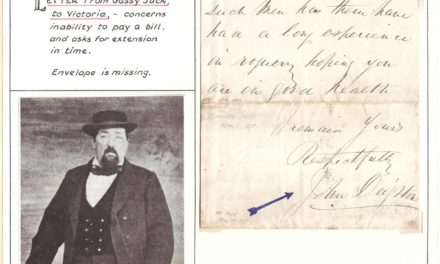 LETTER from Gassy Jack,
to Victoria, - concerns
inability to pay a bill.
and asks for extension
in time.
Envelope is missing.
such Men has them have
had a long experience
in roguery hoping you
are in good health
I remain Yours
Respectfully
John Deighton